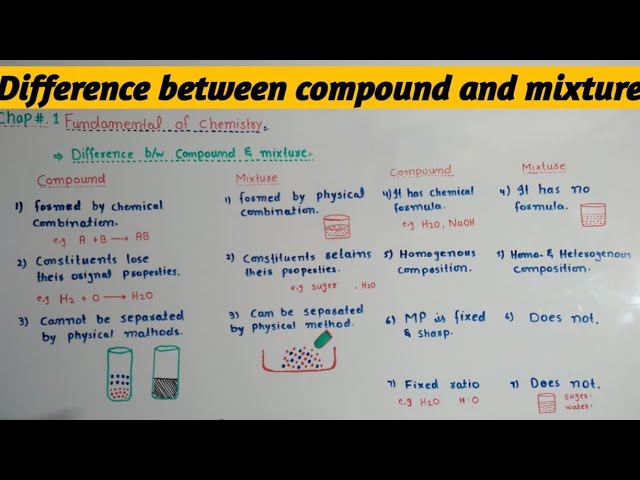 Difference between compound and mixture
Chap #. 1 Fundamental of Chemistry.
⇒ Difference b/w Compound & mixture:-
Compound
1) formed by chemical
Combination.
e.g A + B → AB
2) Constituents lose
their orignal Properties.
e.g H2 + O → H2O
3) Cannot be separated
by physical mathods.
Mixture
1) formed by physical
combination.
2) Constituents retains
their properties.
e.g suger . H2O
3) Can be separated
by physical method.
Compound
4) It has chemical
formula.
e.g H2O, NaOH
5) Homogenous
composition.
6) MP is fixed
& sharp.
7) Fixed ratio
e.g H2O H:O
Mixture
4) It has no
formula.
5) Homo- & Heterogenous
Composition.
6) Does not.
7) Does not.
suger:
water: